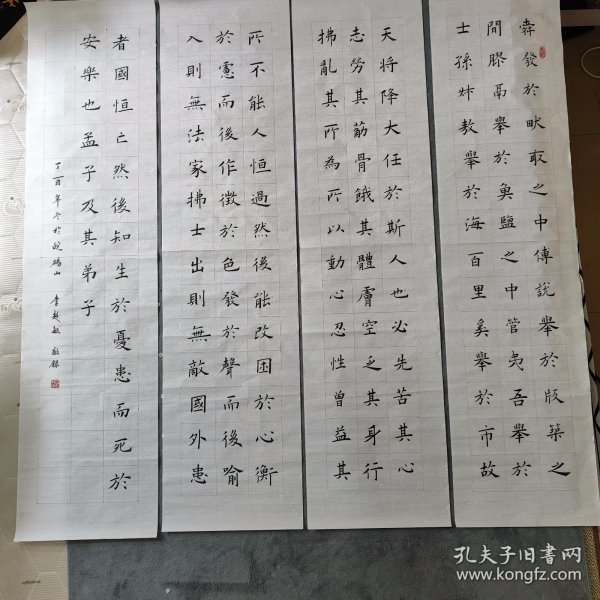 舜發於畎畝之中傳說舉於版築之
間膠鬲舉於魚鹽之中管夷吾舉於
士孫叔敖舉於海百里奚舉於市故
天將降大任於斯人也必先苦其心
志勞其筋骨餓其體膚空乏其身行
拂亂其所為所以動心忍性曾益其
所不能人恒過然後能改困於心衡
於慮而後作徵於色發於聲而後喻
入則無法家拂士出則無敵國外患
者國恒亡然後知生於憂患而死於
安樂也孟子及其弟子
丁酉年冬於皖碭山 李 敏 敬錄
孔夫子旧书网
www.kongfz.com